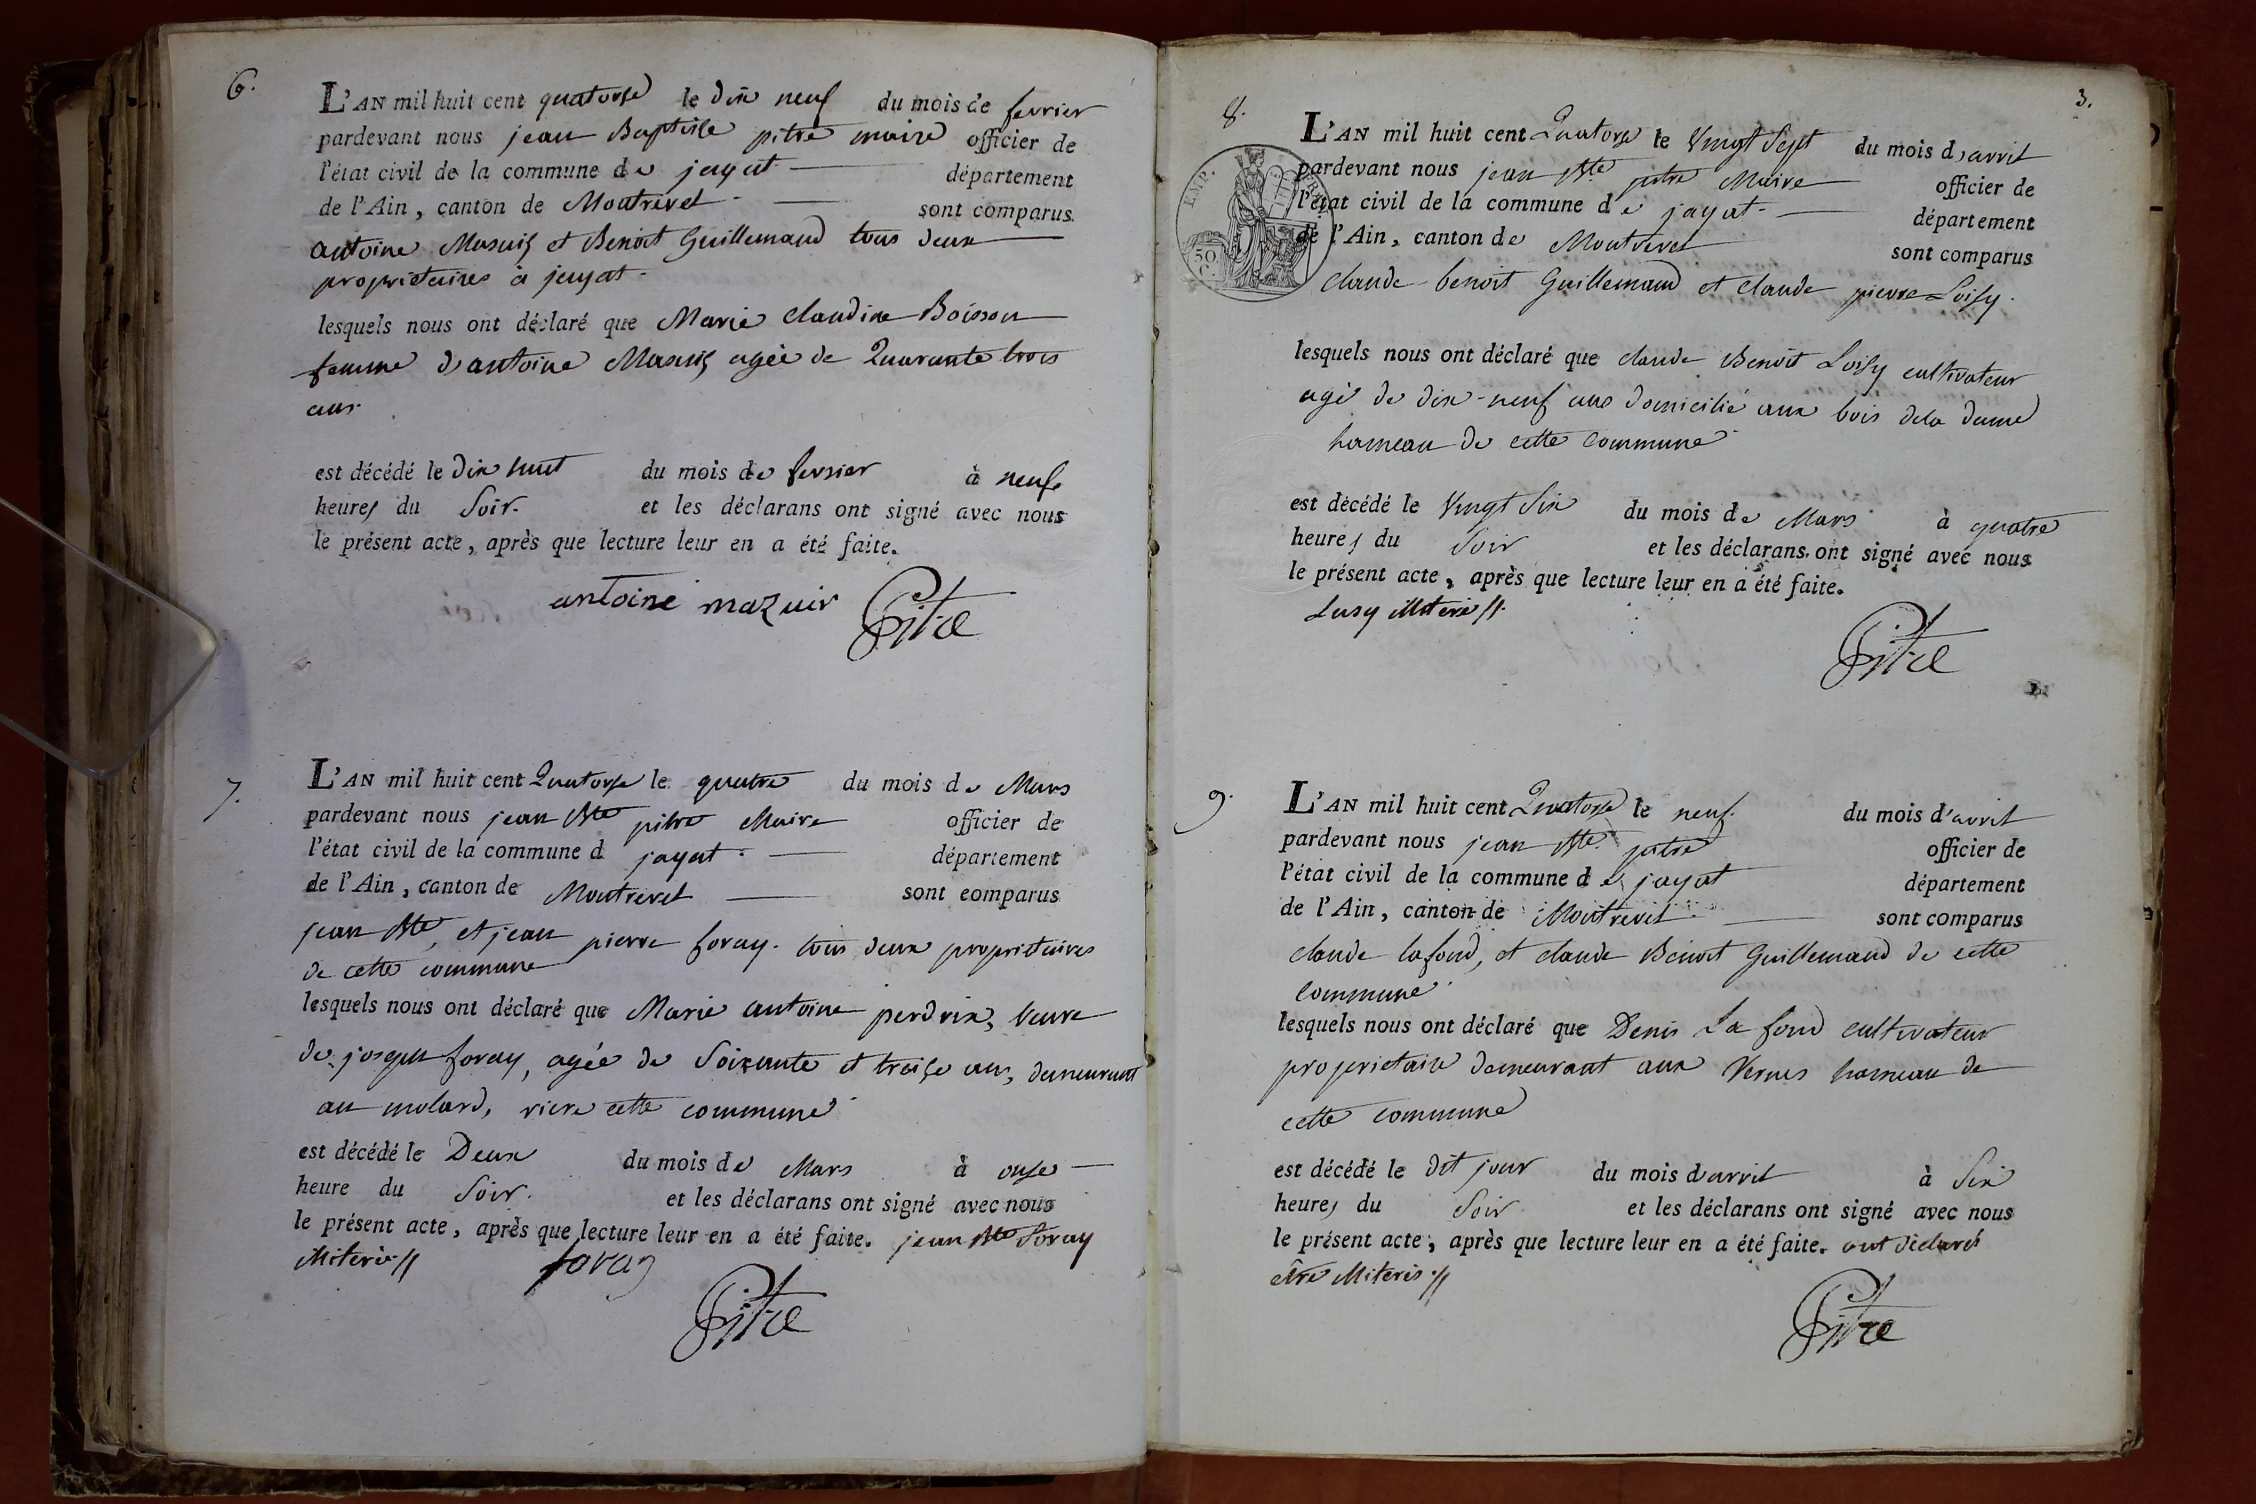 6.
L'AN mil huit cent quatorse le dix neuf du mois de fevrier
pardevant nous jean Baptiste pitre maire officier de
l'état civil de la commune de jayat département
de l'Ain, canton de Montrevel sont comparus
antoine Masuis et Benoit Guillemaud tous deux
proprietaires à jayat.
lesquels nous ont déclaré que Marie claudine Boisson
femme d'antoine Masuis agée de Quarante trois
ans.
est décédé le dix huit du mois de fevrier à neufs
heures du Soir. et les déclarans ont signé avec nous
le présent acte, après que lecture leur en a été faite.
antoine mazuir Pitre
7.
L'AN mil huit cent Quatorse le quatre du mois de Mars
pardevant nous jean Bte pitre Maire officier de
l'état civil de la commune d jayat. département
de l'Ain, canton de Montrevel sont comparus
jean Bte, et jean pierre foray. tous deux proprietaires
de cette commune
lesquels nous ont déclaré que Marie antoine perdrix, veuve
de joseph foray, agée de Soixante et treise ans, demeurant
au molard, riere cette commune
est décédé le Deux du mois de Mars à onse
heure du Soir. et les déclarans ont signé avec nous
le présent acte, après que lecture leur en a été faite. jean Bte foray
illiterès // foray
Pitre
3.
8.
L'AN mil huit cent Quatorse le Vingt Sept du mois d'avril
pardevant nous jean Bte pitre Maire officier de
l'état civil de la commune de jayat. département
de l'Ain, canton de Montrevel sont comparus
EMP. FR
50 C.
claude-benoit Guillemaud et claude pierre Loisy.
lesquels nous ont déclaré que claude Benoit Loisy cultivateur
agé de dix-neuf ans domicilié aux bois dela dame
hameau de cette commune
est décédé le Vingt Six du mois de Mars à quatre
heures du Soir et les déclarans ont signé avec nous
le présent acte, après que lecture leur en a été faite.
illiteré //.
Pitre
9.
L'AN mil huit cent Quatorse le neuf. du mois d'avril
pardevant nous jean Bte. pitre officier de
l'état civil de la commune de jayat département
de l'Ain, canton de Montrevel sont comparus
claude lafond, et claude Benoit Guillemaud de cette
commune.
lesquels nous ont déclaré que Denis La fond cultivateur
proprietaire demeurant aux Vernes hameau de
cette commune
est décédé le dit jour du mois d'avril à Six
heures du Soir et les déclarans ont signé avec nous
le présent acte, après que lecture leur en a été faite. ont déclarés
être illiterès. //
Pitre